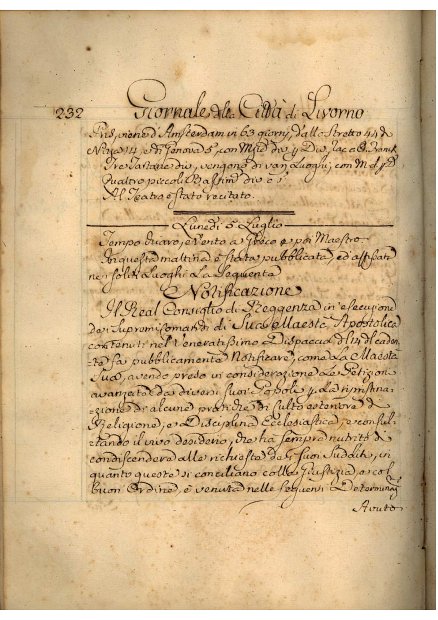 232 Giornale della Città di Livorno
d'Amsterdam in 63 giorni, dallo Stretto 44 da
Nizza 4 e di Genova 5, con
Tre Tartane vengono di varj Luoghi, con M. d.
Quattro piccoli Bastim.
Al Teatro è stato recitato.
Lunedì 5 Luglio
Tempo vario, e Vento a e poi Maestro.
In questa mattina è stata pubblicata, ed affissa
ne soliti Luoghi La Seguente
Notificazione
Il Real Consiglio di Reggenza in esecuzione
de Supremi Comandi di Sua Maesta Apostolica
contenuti nel Veneratissimo Dispaccio del
te fa pubblicamente Notificare, come La Maestà
Sua, avendo preso in considerazione Le Petizioni
avanzate da diversi suoi Popoli La ripristina-
zione di alcune pratiche di culto esteriore di
Religione, e Disciplina Ecclesiastica, e consul-
tando il vivo desiderio, che ha sempre nutrito di
condiscendere alle richieste de Suoi Sudditi, in
quanto queste si conciliano colla Giustizia, e col
buon Ordine, è venuta nelle seguenti
Avuto